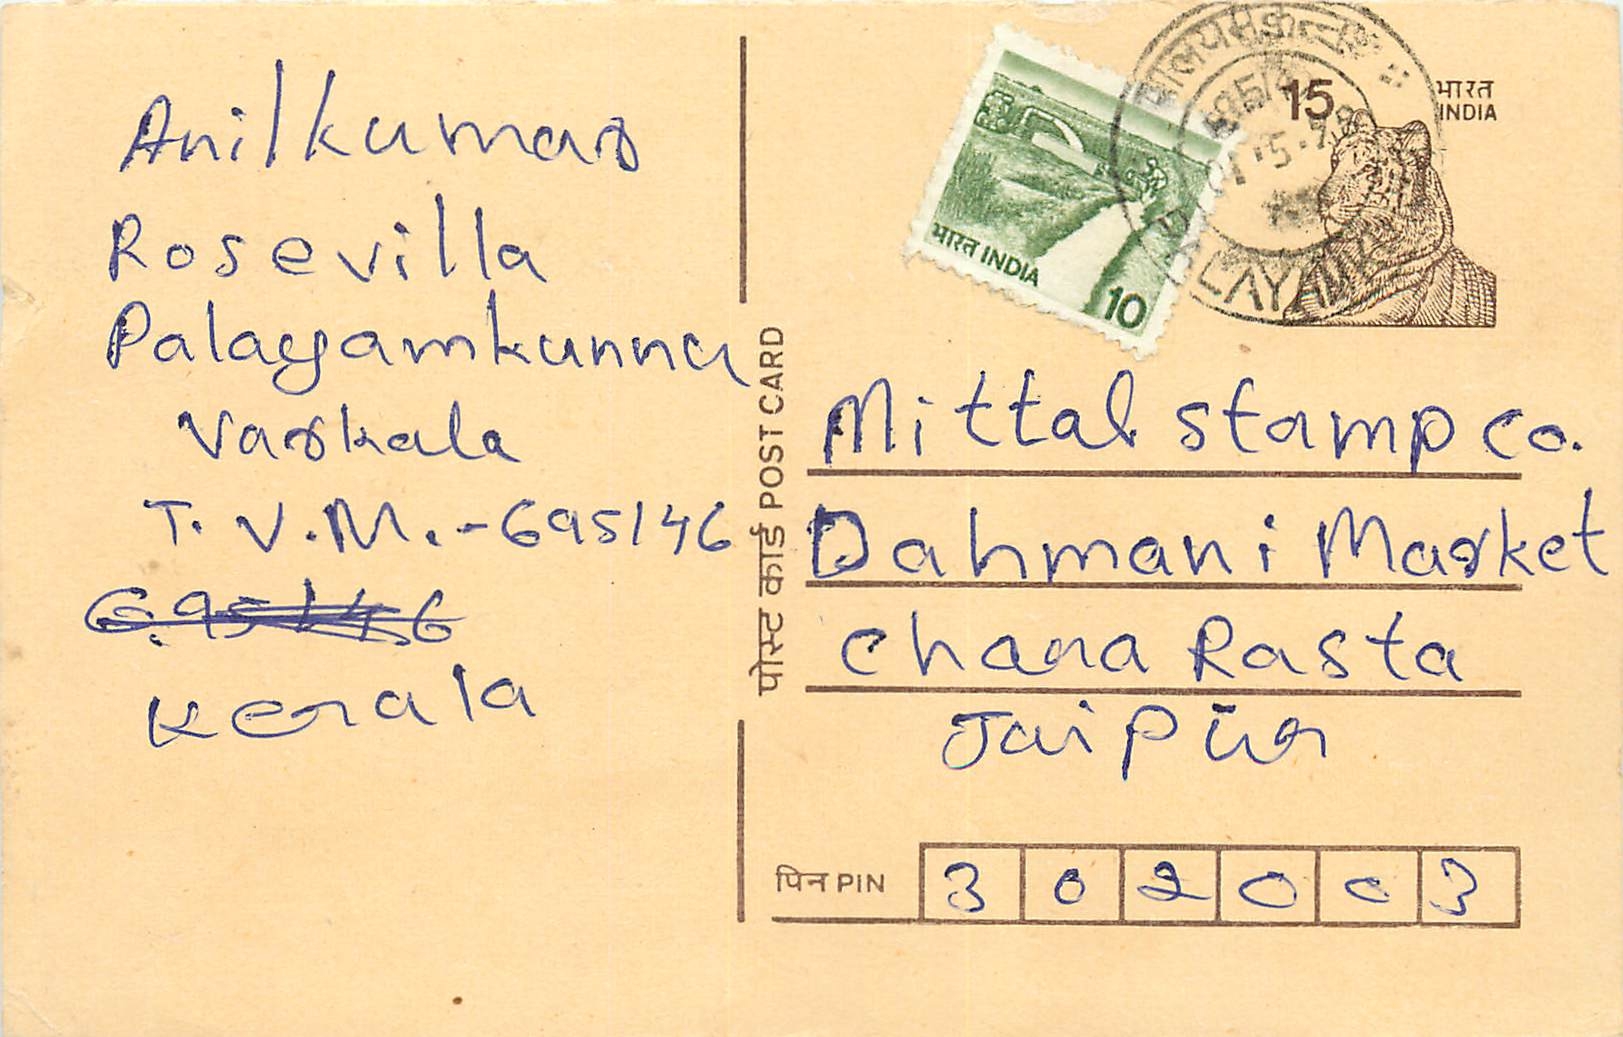 Anilkumar
Rosevilla
Palayamkunnu
Varkala
T.V.M.-695146
695146
Kerala
पोस्ट कार्ड POST CARD
भारत INDIA
10
15
भारत
INDIA
Mittal Stamp Co.
Dahmani Market
Chana Rasta
Jaipur
पिन PIN
302003